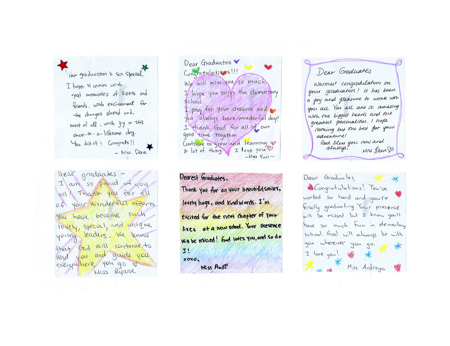 Your graduation is so special.
I hope it comes with
good memories of times and
friends, with excitement for
the changes ahead and,
most of all, with joy in this
once-in-a-lifetime day.
You did it! Congrats!!
- Miss Dane
Dear Graduates
Congratulations!!!
We will miss you so much
I hope you enjoy the elementary
school.
I pray for your dreams and
you always have wonderful day!
I thank God for all our
good time together
Continue to grow and learning
a lot of things I love you
- Miss Yuri -
Dear Graduates
Warmest congratulations on
your graduation! It has been
a joy and pleasure to work with
you all. You all are so amazing
with the biggest hearts and the
greatest personalities. I hope
nothing but the best for your
adventure!
God bless you now and
always!
Miss
Dear graduates -
I am so proud of you
all! Thank you for all
of your wonderful efforts.
You have become such
lovely, special, and unique
young leaders. We know
that God will continue to
lead you and guide you
everywhere you go.
Miss
Dearest Graduates,
Thank you for all your beautiful smiles,
lovely hugs, and kind words. I'm
excited for the next chapter of your
lives at a new school. Your presence
will be missed! God loves you, and so do
I!
xoxo,
Miss
Dear Graduates
Congratulations! You've
worked so hard and you're
finally graduating. Your presence
will be missed but I know you'll
have so much fun in elementary
school. God will always be with
you wherever you go.
I love you!
Miss Andreya